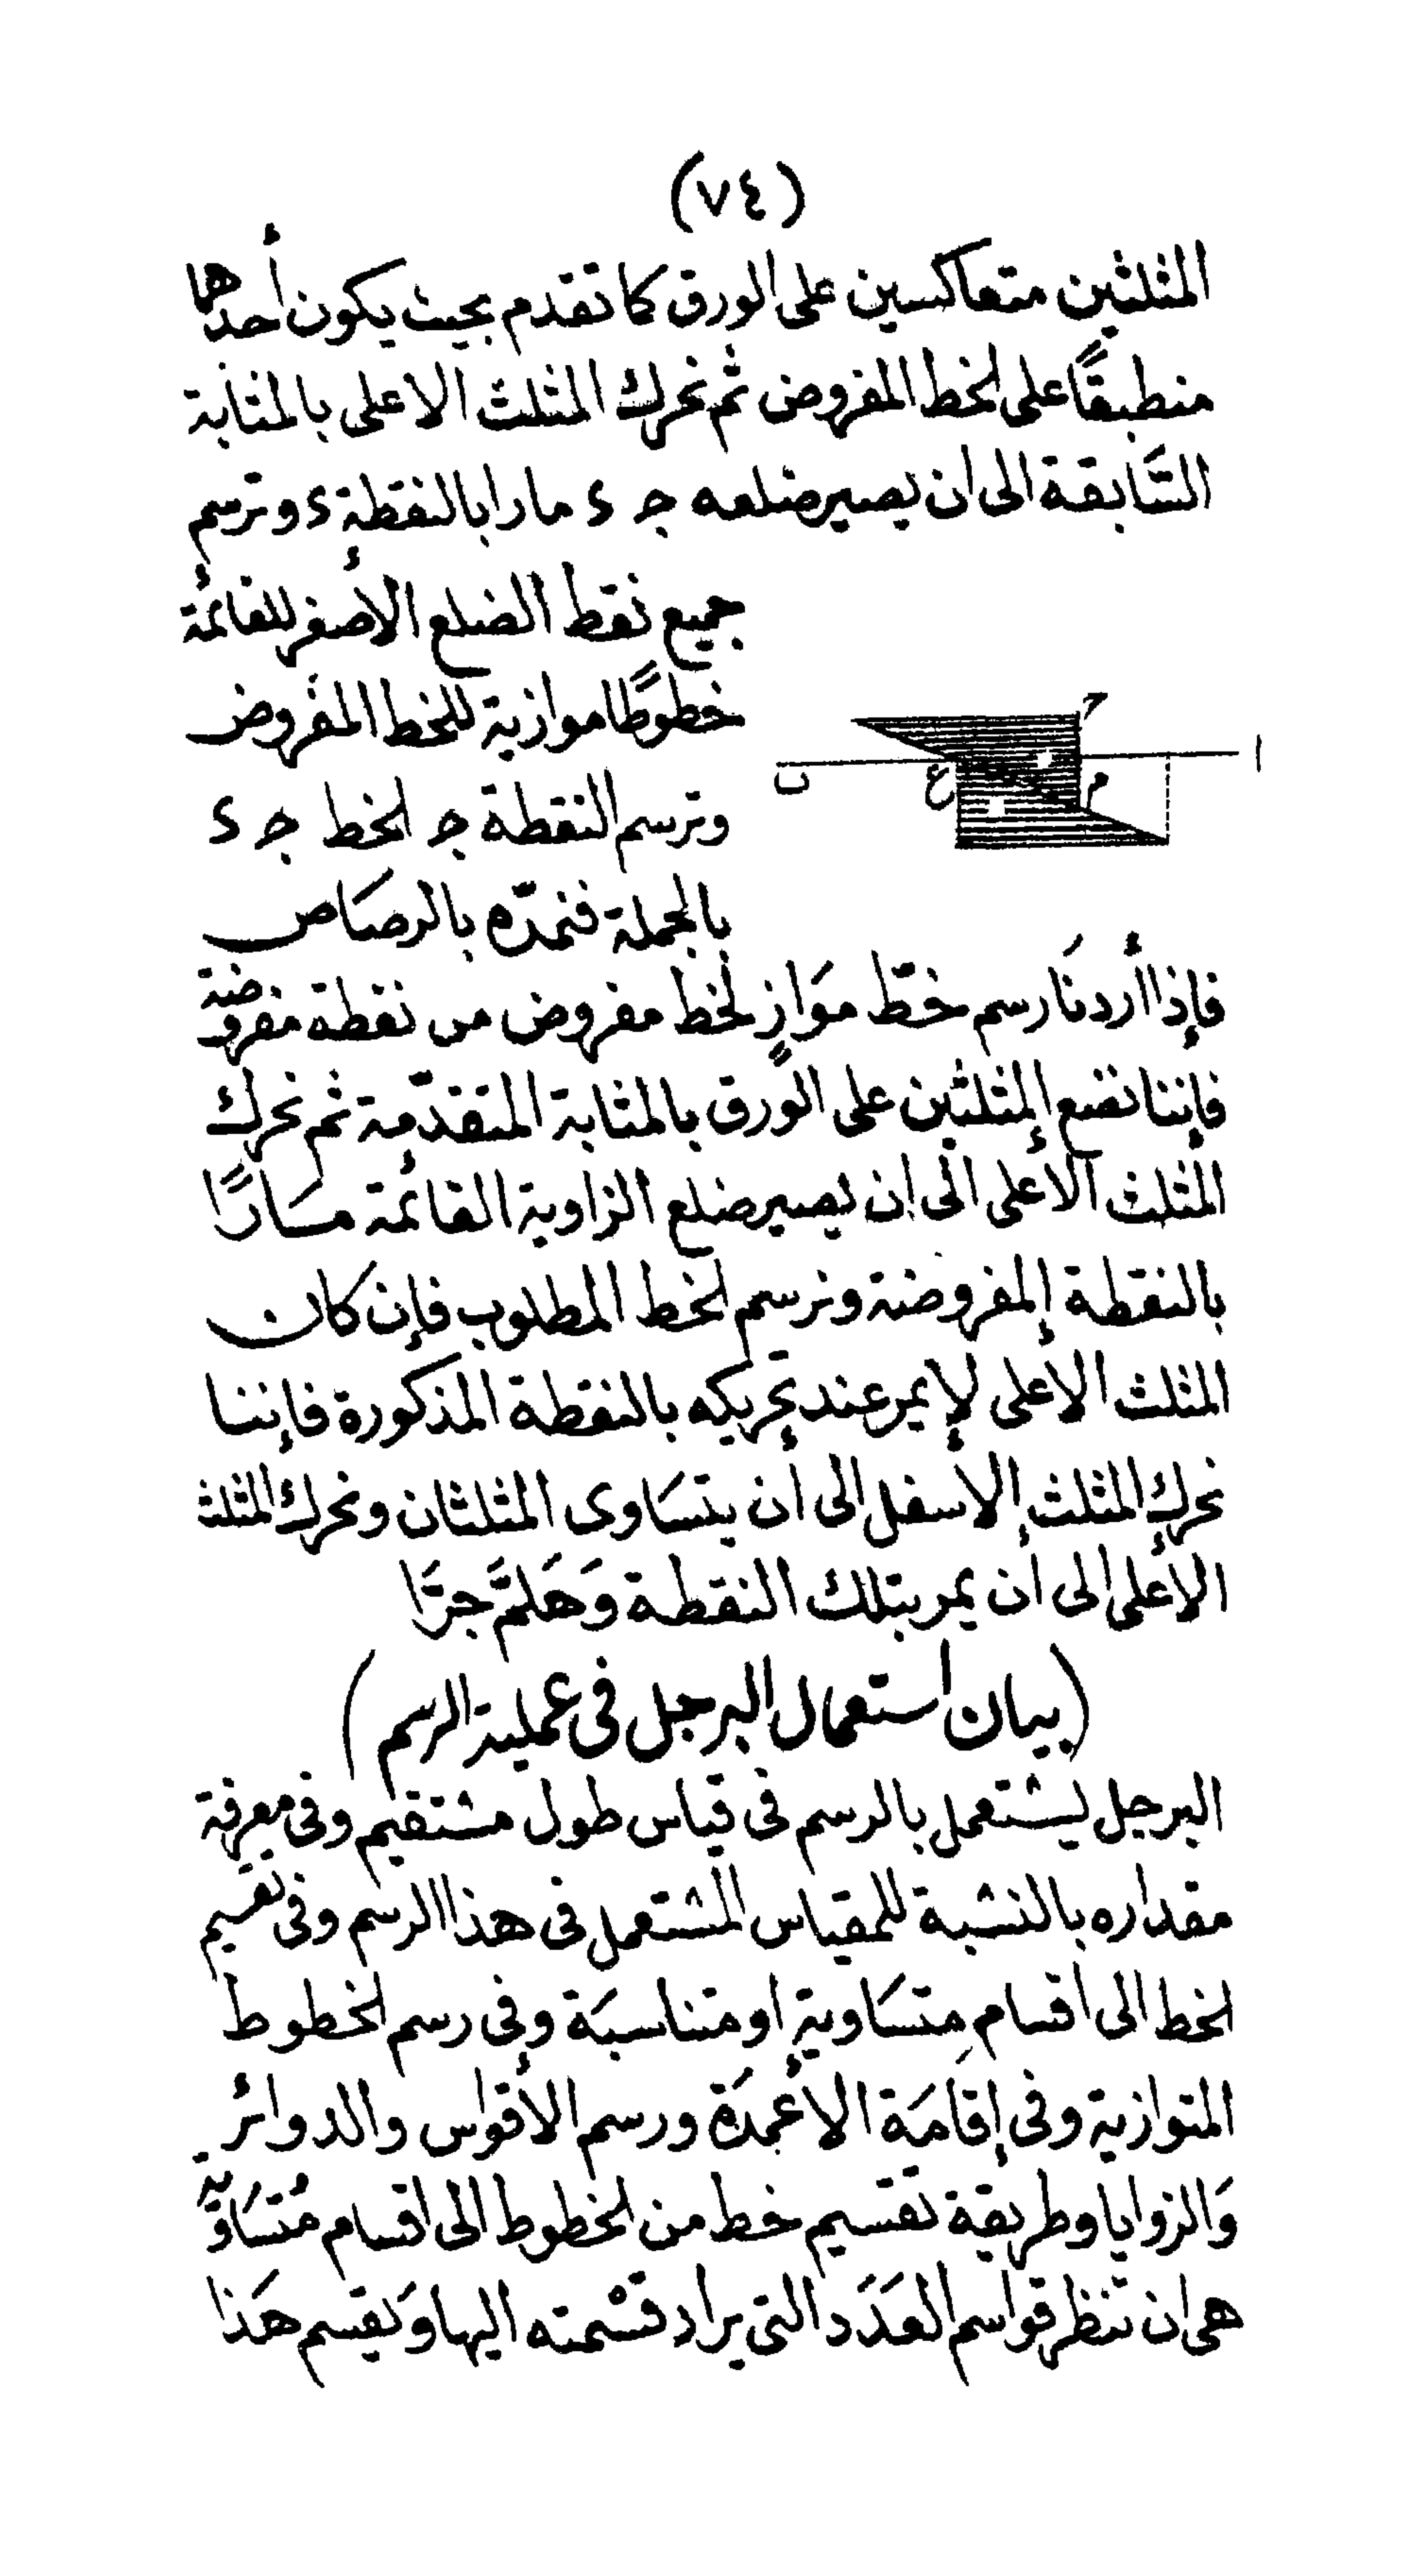 (٧٤)
المثلثين متعاكسين على الورق كما تقدم بحيث يكون أحدهما
منطبقًا على الخط المفروض ثم نحرك المثلث الاعلى بالمثابة
السَّابقة الى ان يصير ضلعه جـ ء مارا بالنقطة ء وترسم
جميع نقط الضلع الأصغر للقائمة
خطوطًا موازية للخط المفروض
وترسم النقطة جـ الخط جـ ء
بالجملة فنمدّه بالرصَاص
ح
ا
م
ع
ب
فإذا أردنَا رسم خطّ موَازٍ لخط مفروض من نقطة مفروضة
فإننا نضع المثلثين على الورق بالمثابة المتقدّمة ثم نحرك
المثلث الأعلى الى ان يصير ضلع الزاوية القائمة مسَارًّا
بالنقطة المفروضة ونرسم الخط المطلوب فإن كان
المثلث الاعلى لا يمر عند تحريكه بالنقطة المذكورة فإننا
نحرك المثلث الأسفل الى أن يتسَاوى المثلثان ونحرك المثلث
الأعلى الى أن يمر بتلك النقطة وَهَلمَّ جرَّا
(بيان استعمال البرجل فى عملية الرسم)
البرجل يستعمل بالرسم فى قياس طول مستقيم وفى معرفة
مقداره بالنسبة للمقياس المستعمل فى هذا الرسم وفى تقسيم
الخط الى اقسام متسَاوية او متناسبَة وفى رسم الخطوط
المتوازية وفى إقَامَة الأعمدَة ورسم الأقواس والدوائر
وَالزوايا وطريقة تقسيم خط من الخطوط الى اقسام مُتسَاوَية
هى ان تنظر قواسم العَدَد التى يراد قسْمته اليها وَيقسم هَذا